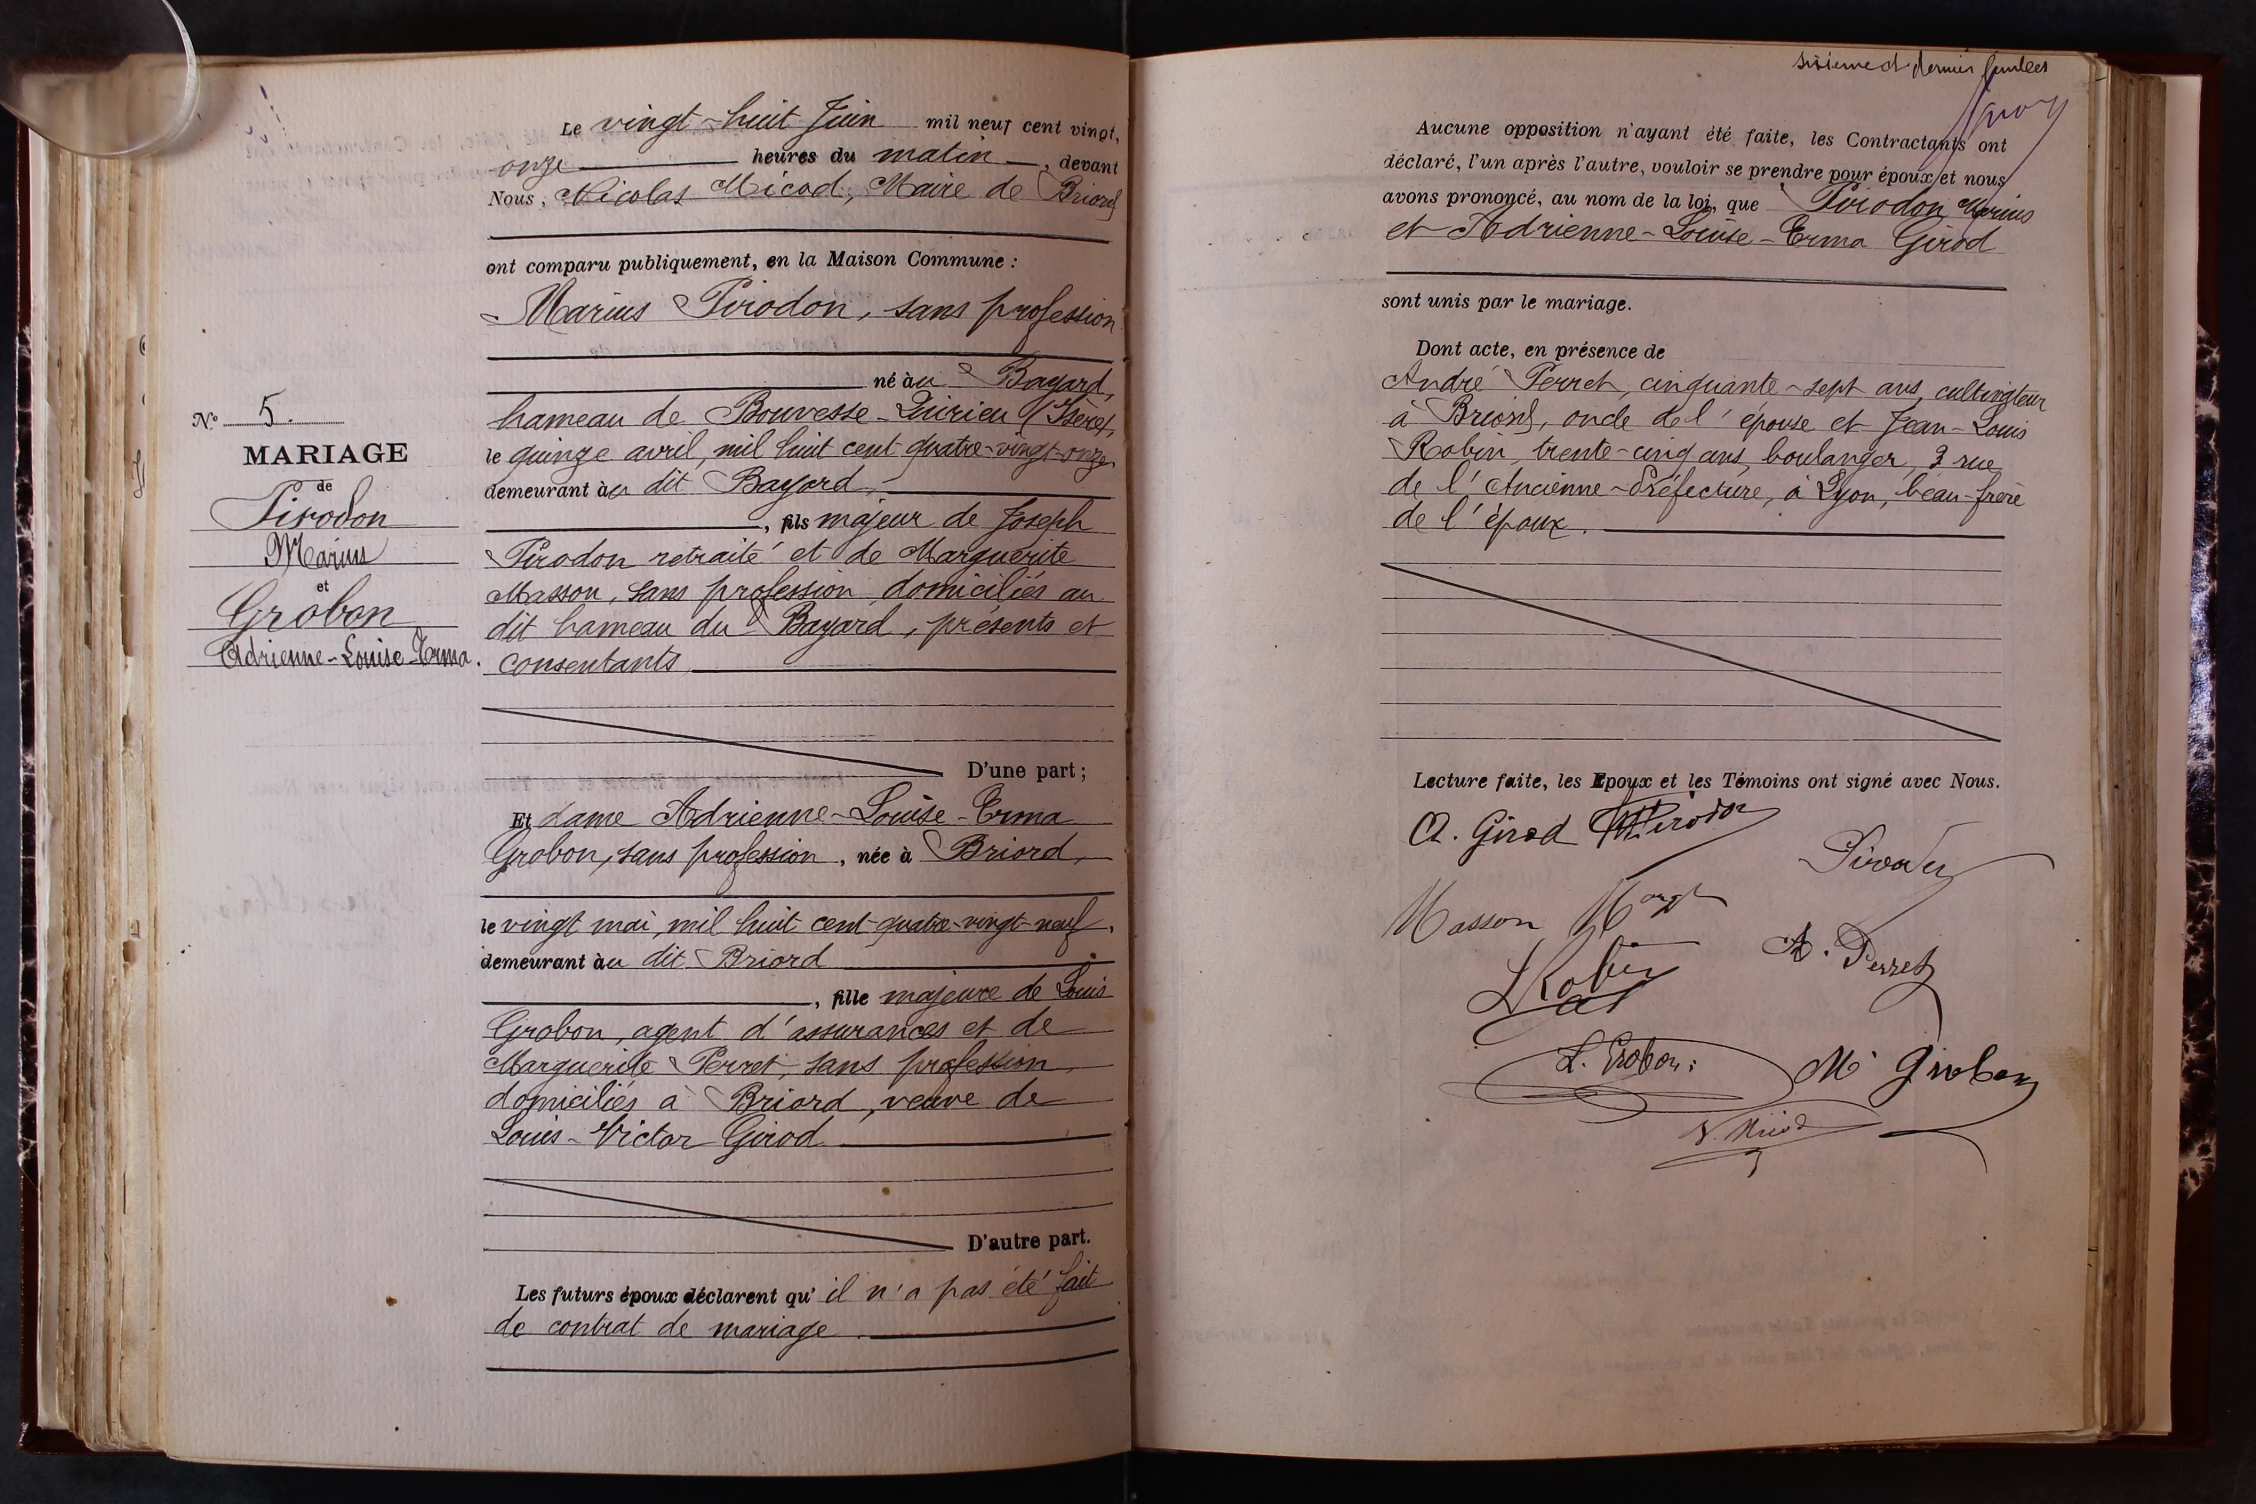 N° 5.
MARIAGE
de
Pirodon
Marius
et
Grobon
Adrienne-Louise-Erma.
Le vingt-huit Juin mil neuf cent vingt,
onze heures du matin, devant
Nous, Nicolas Micod, Maire de Briord
ont comparu publiquement, en la Maison Commune :
Marius Pirodon, sans profession
né àu Bayard,
hameau de Bouvesse-Quirieu (Isère),
le quinze avril, mil huit cent quatre-vingt-onze
demeurant àu dit Bayard,
, fils majeur de Joseph
Pirodon retraité et de Marguerite
Masson, sans profession, domiciliés au
dit hameau du Bayard, présents et
consentants
D'une part ;
Et dame Adrienne-Louise-Erma
Grobon, sans profession, née à Briord,
le vingt mai, mil huit cent-quatre-vingt-neuf,
demeurant àu dit Briord
, fille majeure de Louis
Grobon, agent d'assurances et de
Marguerite Perret, sans profession,
domiciliés à Briord, veuve de
Louis-Victor Girod
D'autre part.
Les futurs époux déclarent qu' il n'a pas été fait
de contrat de mariage.
sixième et dernier feuillet
Aucune opposition n'ayant été faite, les Contractants ont
déclaré, l'un après l'autre, vouloir se prendre pour époux et nous
avons prononcé, au nom de la loi, que Pirodon Marius
et Adrienne-Louise-Erma Girod
sont unis par le mariage.
Dont acte, en présence de
André Perret, cinquante-sept ans, cultivateur
à Briord, oncle de l'épouse et Jean-Louis
Robin, trente-cinq ans, boulanger, 3 rue
de l'Ancienne-Préfecture, à Lyon, beau-frère
de l'époux.
Lecture faite, les Epoux et les Témoins ont signé avec Nous.
A. Girod Pirodon
Pirodon
Masson Margt
LRobin
A. Perret
L. Grobon
M Grobon
N. Micod